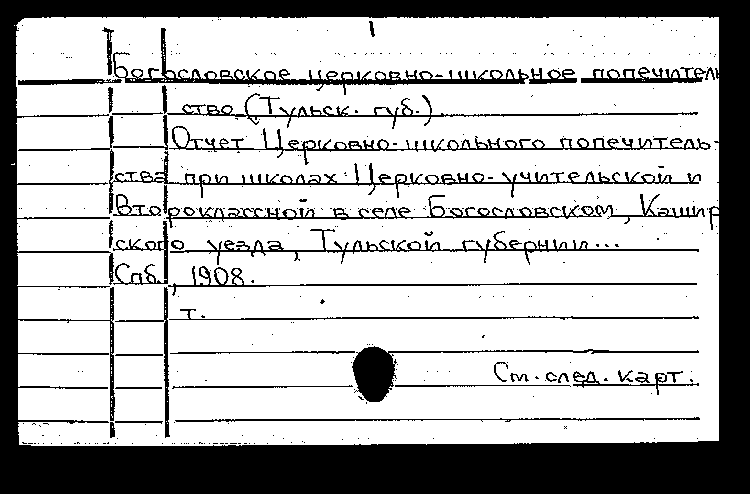 Богословское церковно-школьное попечитель
ство (Тульск. губ.)
Отчет Церковно-школьного попечитель-
ства при школах: Церковно-учительской и
Второклассной в селе Богословском, Кашир
ского уезда, Тульской губернии...
Спб., 1908.
т.
См. след. карт.